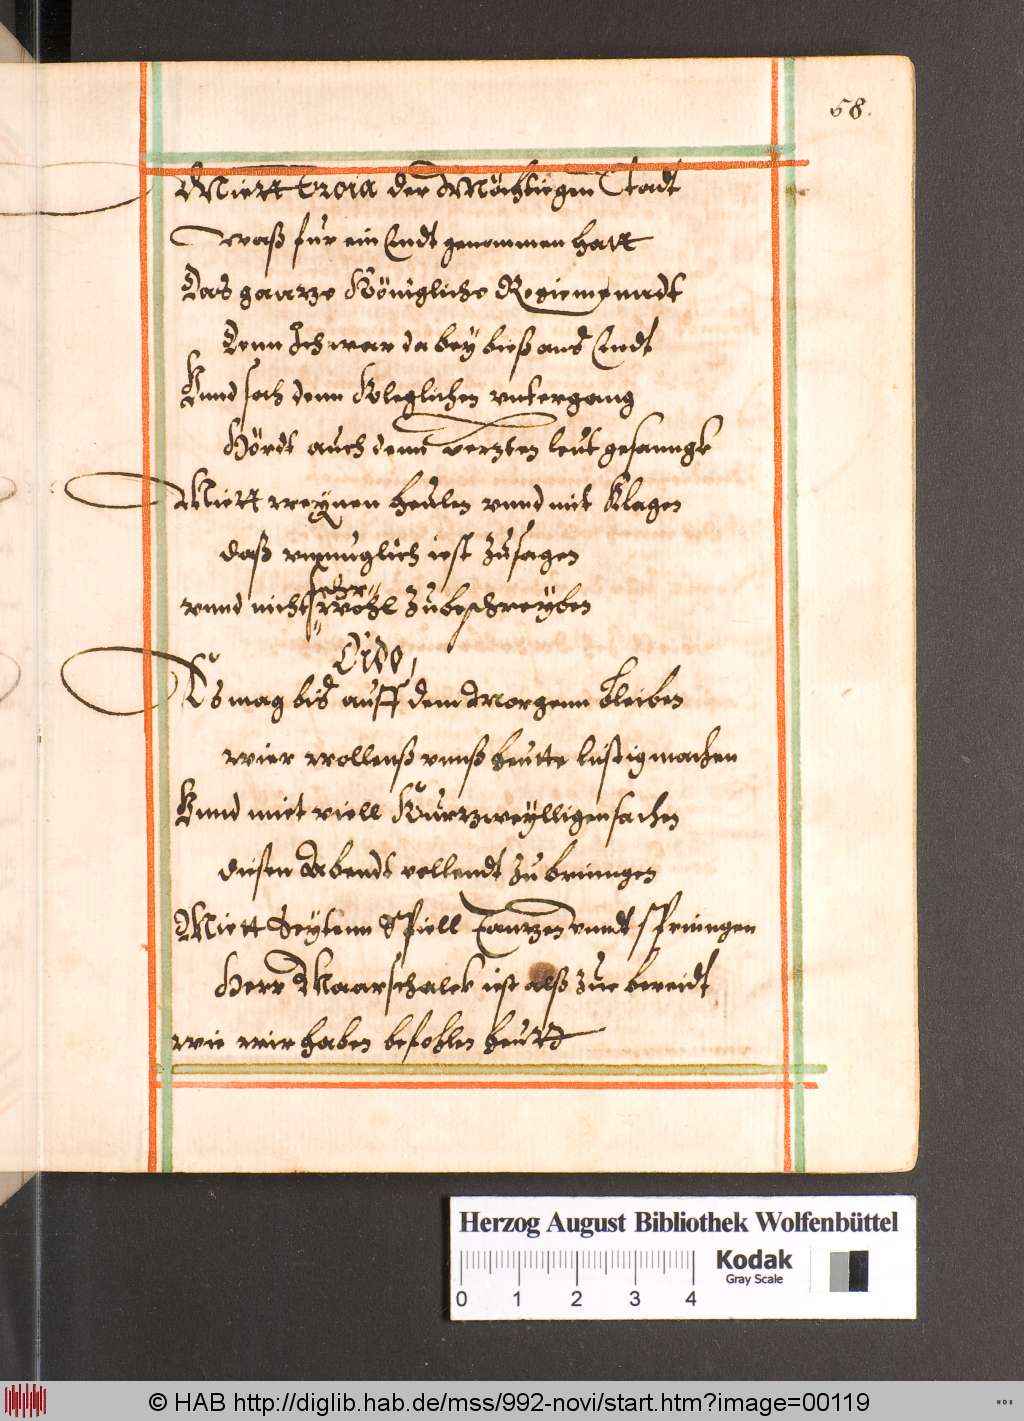 58.
Miett Troia der Mächtiegen Stadt
waß für ein Endt genommen hatt
Das gaanze Königliche Regiemenndt
Denn Ich war da bey bieß ans Endt
Vnnd sach denn Kleglichen vntergang
Hördt auch denn letut gesanngk
Miett weÿnen heulen vnnd mit Klagen
daß vnmuglich iest zusagen
vnnd nicht sehr wohl zubeschreÿben
Dido
Es mag bis auff dem Morgenn bleiben
wier wollenß vnnß heutte lustig machen
Vnnd miet viell Kurtzweÿlligen sachen
diesen Abendt vollendt zu bringen
Miett Seytenn Spiell Tantzen vnndt springen
Herr Maarschalck iest alß zue bereidt
wie wir haben befohlen heutt
Herzog August Bibliothek Wolfenbüttel
Kodak
Gray Scale
0 1 2 3 4
© HAB http://diglib.hab.de/mss/992-novi/start.htm?image=00119